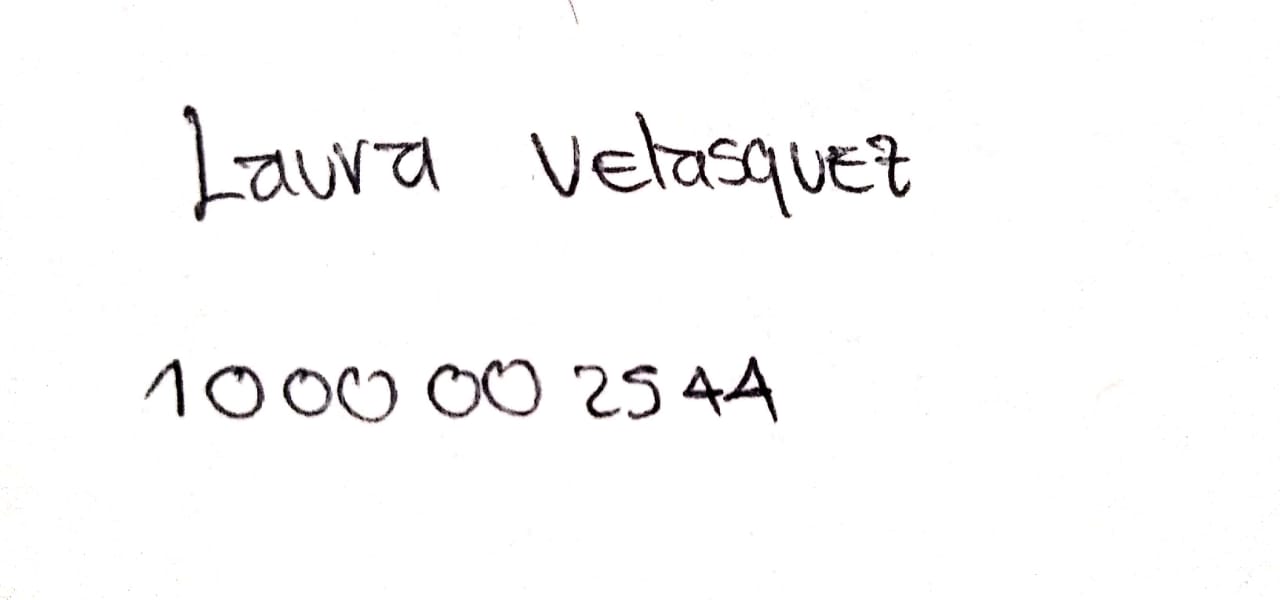 Laura Velasquez
1000002544